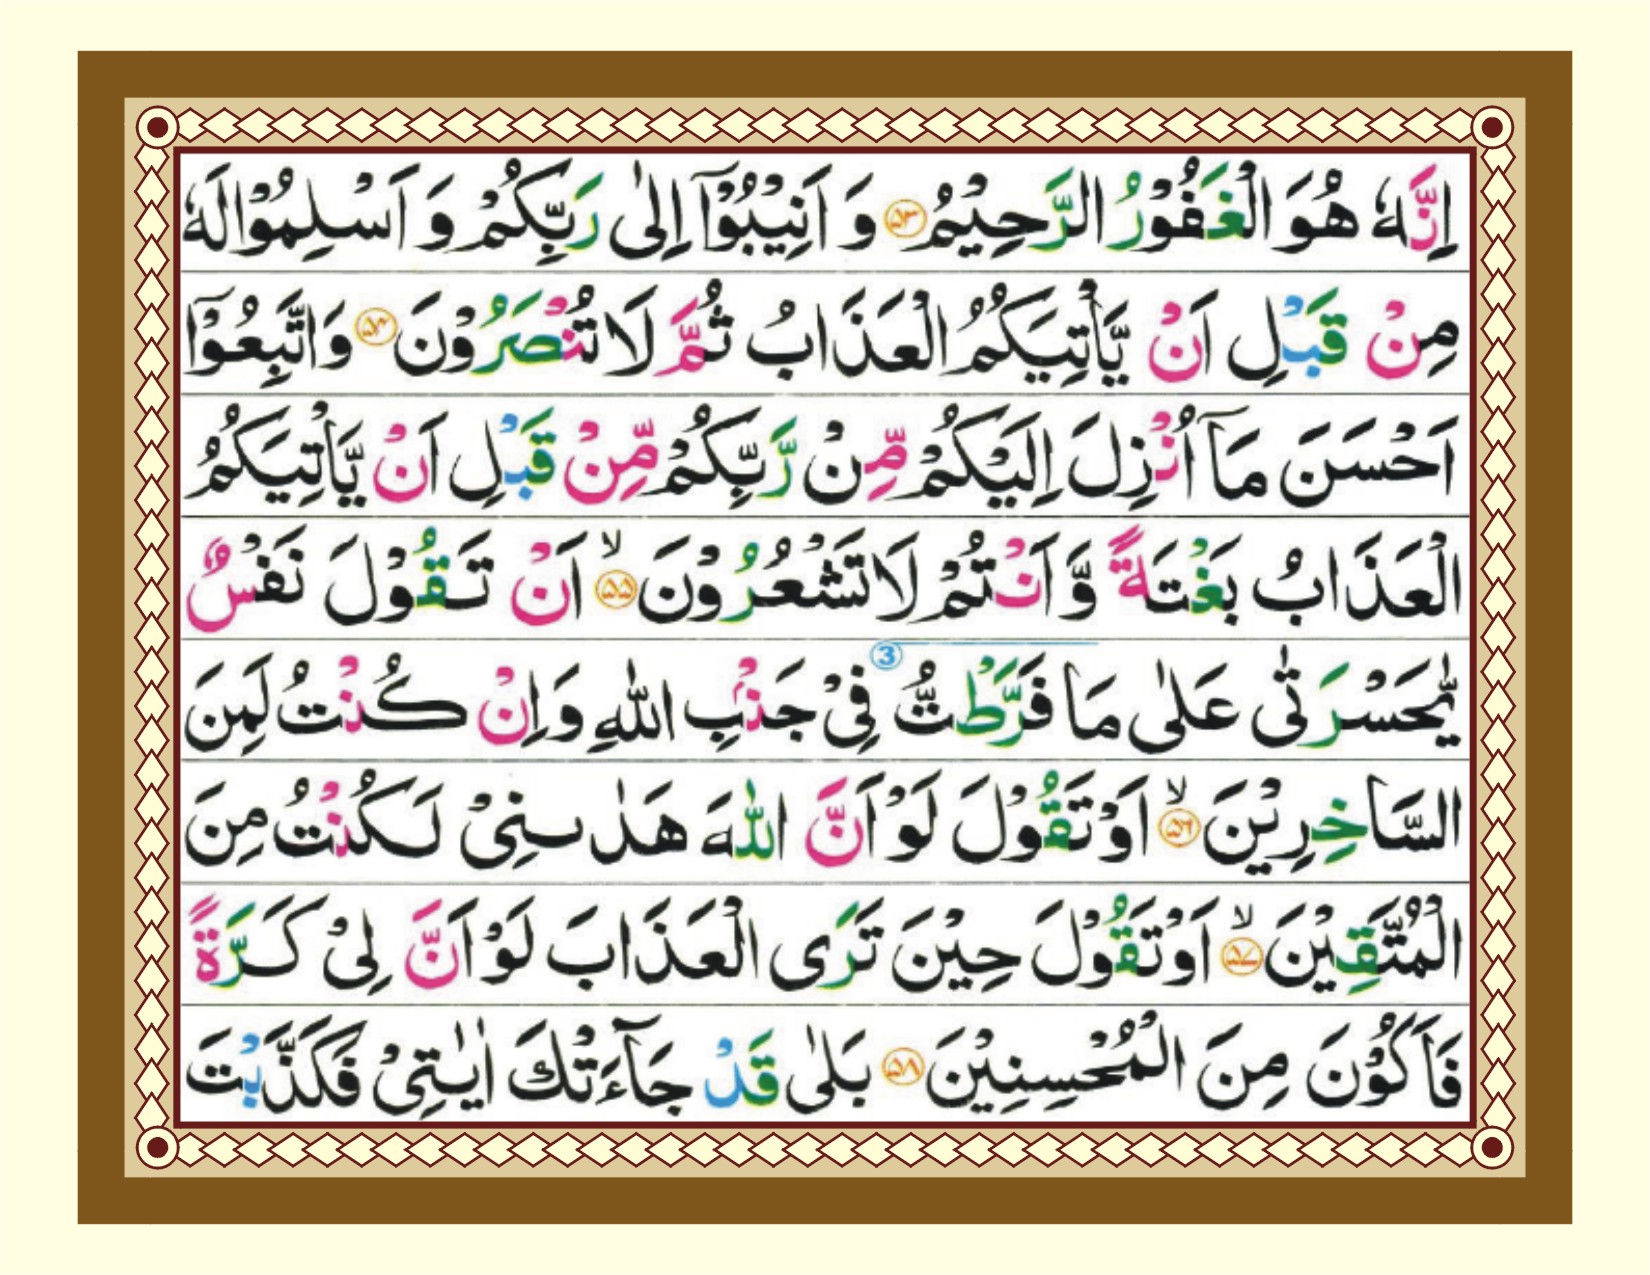 اِنَّهٗ هُوَ الْغَفُوْرُ الرَّحِيْمُ ۵۳ وَ اَنِيْبُوْۤا اِلٰى رَبِّكُمْ وَ اَسْلِمُوْا لَهٗ
مِنْ قَبْلِ اَنْ يَّاْتِيَكُمُ الْعَذَابُ ثُمَّ لَا تُنْصَرُوْنَ ۵۴ وَ اتَّبِعُوْۤا
اَحْسَنَ مَاۤ اُنْزِلَ اِلَيْكُمْ مِّنْ رَّبِّكُمْ مِّنْ قَبْلِ اَنْ يَّاْتِيَكُمُ
الْعَذَابُ بَغْتَةً وَّ اَنْتُمْ لَا تَشْعُرُوْنَ ۙ ۵۵ اَنْ تَقُوْلَ نَفْسٌ
يّٰحَسْرَتٰى عَلٰى مَا فَرَّطْتُّ 3 فِيْ جَنْۢبِ اللّٰهِ وَ اِنْ كُنْتُ لَمِنَ
السَّاخِرِيْنَ ۙ ۵۶ اَوْ تَقُوْلَ لَوْ اَنَّ اللّٰهَ هَدٰىنِيْ لَكُنْتُ مِنَ
الْمُتَّقِيْنَ ۙ ۵۷ اَوْ تَقُوْلَ حِيْنَ تَرَى الْعَذَابَ لَوْ اَنَّ لِيْ كَرَّةً
فَاَكُوْنَ مِنَ الْمُحْسِنِيْنَ ۵۸ بَلٰى قَدْ جَآءَتْكَ اٰيٰتِيْ فَكَذَّبْتَ